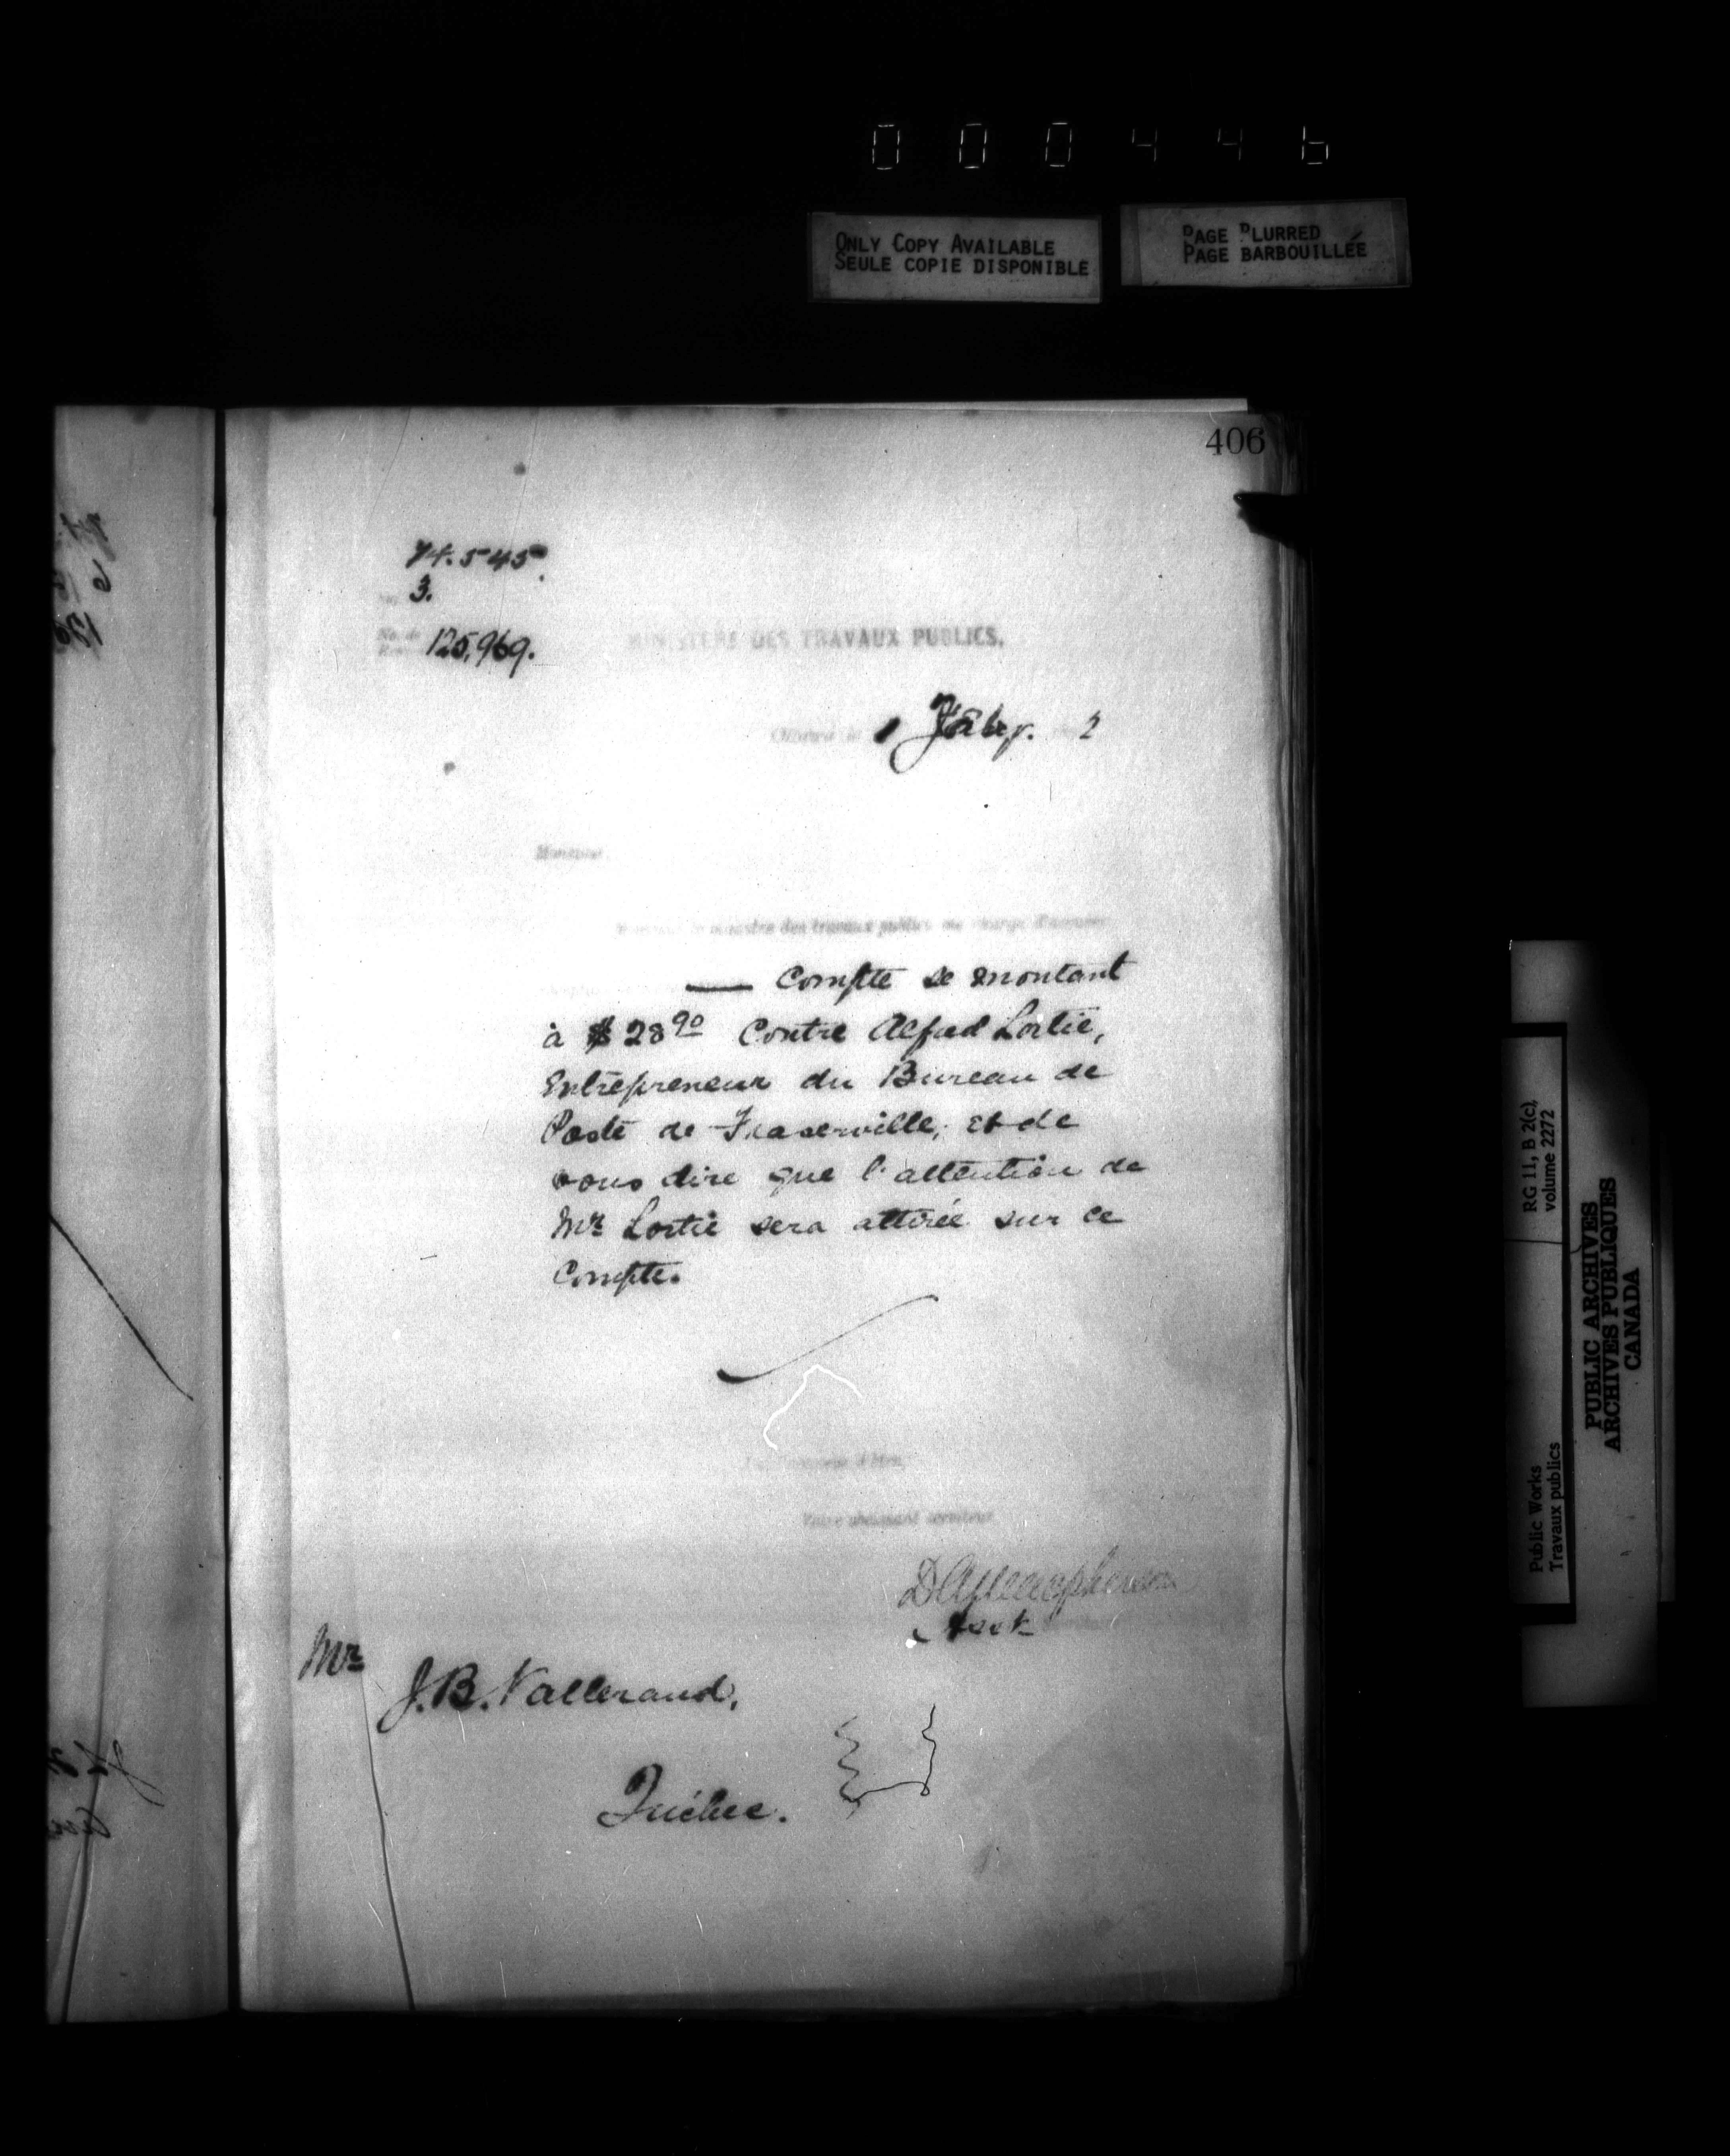 000446
ONLY COPY AVAILABLE
SEULE COPIE DISPONIBLE
PAGE BLURRED
PAGE BARBOUILLÉE
406
74.545
3.
No. de
125,969.
MINISTÈRE DES TRAVAUX PUBLICS.
Ottawa le 1 Fébr. 2
Monsieur,
ministre des travaux publics me charge d'accuser
— Compte se montant
à $28 90 Contre Alfred Lortie,
Entrepreneur du Bureau de
Poste de Fraserville, et de
vous dire que l'attention de
Mr Lortie sera attirée sur ce
Compte.
J'ai l'honneur d'être,
Votre obéissant serviteur
Mr
J.B. Vallerand,
Québec.
RG 11, B 2(c),
volume 2272
Public Works
Travaux publics
PUBLIC ARCHIVES
ARCHIVES PUBLIQUES
CANADA